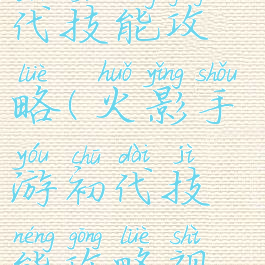 代技能攻
lüè huǒ yǐng shǒu
略(火影手
yóu chū dài jì
游初代技
néng gōng lüè shì
能攻略视